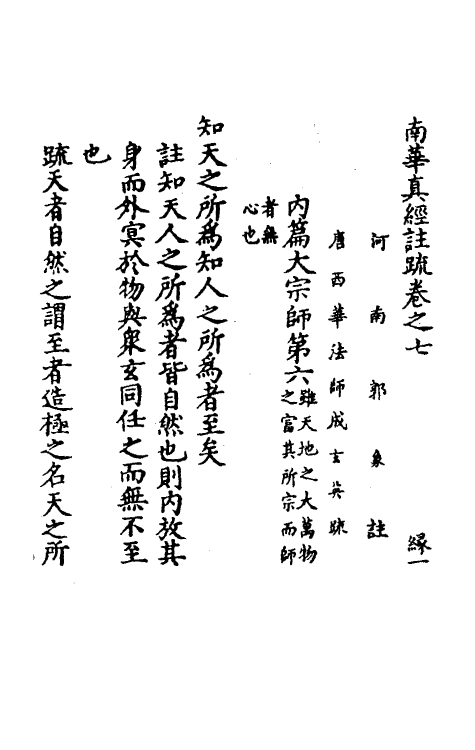 南華真經註疏卷之七　緣一
河南郭象註
唐西華法師成玄英疏
內篇大宗師第六雖天地之大萬物之富其所宗而師
者無心也
知天之所為知人之所為者至矣
註知天人之所為者皆自然也則內放其
身而外冥於物與衆玄同任之而無不至
也
疏天者自然之謂至者造極之名天之所